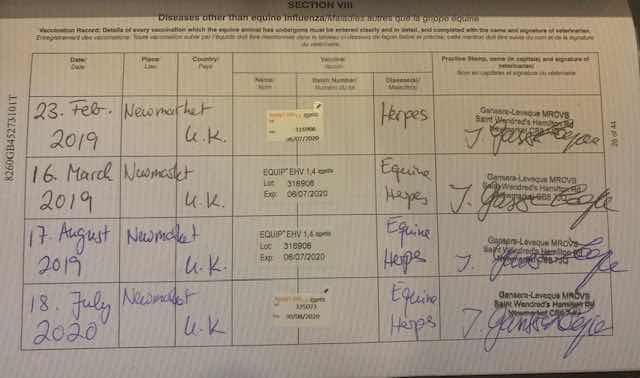 SECTION VIII
Diseases other than equine influenza/Maladies autres que la grippe équine
Vaccination Record: Details of every vaccination which the equine animal has undergone must be entered clearly and in detail, and completed with the name and signature of veterinarian.
Enregistrement des vaccinations: Toute vaccination subie par l'équidé doit être mentionnée dans le tableau ci-dessous de façon lisible et précise, cette mention doit être suivie du nom et de la signature
du vétérinaire.
Date/ Place/ Country/ Vaccine/ Practice Stamp, name (in capitals) and signature of
Date Lieu Pays Vaccin veterinarian/
Name/ Batch Number/ Disease(s)/ Nom en capitales et signature du vétérinaire
Nom Numéro du lot Maladie(s)
23. Feb. Newmarket Herpes
2019 U.K.
316906
06/07/2020
Gansera-Leveque MRCVS
Saint Wendred's Hamilton Rd
Newmarket CB8
16. March Newmarket Equine
2019 U.K. Herpes
EQUIP EHV 1,4 zoetis
Lot: 316906
Exp: 06/07/2020
Gansera-Leveque MRCVS
Saint Wendred's Hamilton Rd
Newmarket CB8
17. August Newmarket Equine
2019 U.K. Herpes
EQUIP EHV 1,4 zoetis
Lot: 316906
Exp: 06/07/2020
Gansera-Leveque MRCVS
Saint Wendred's Hamilton Rd
Newmarket CB8 7JQ
18. July Newmarket Equine
2020 U.K. Herpes
zoetis
325073
Gansera-Leveque MRCVS
Saint Wendred's Hamilton Rd
Newmarket CB8
8260GB45273101T
26 of 44